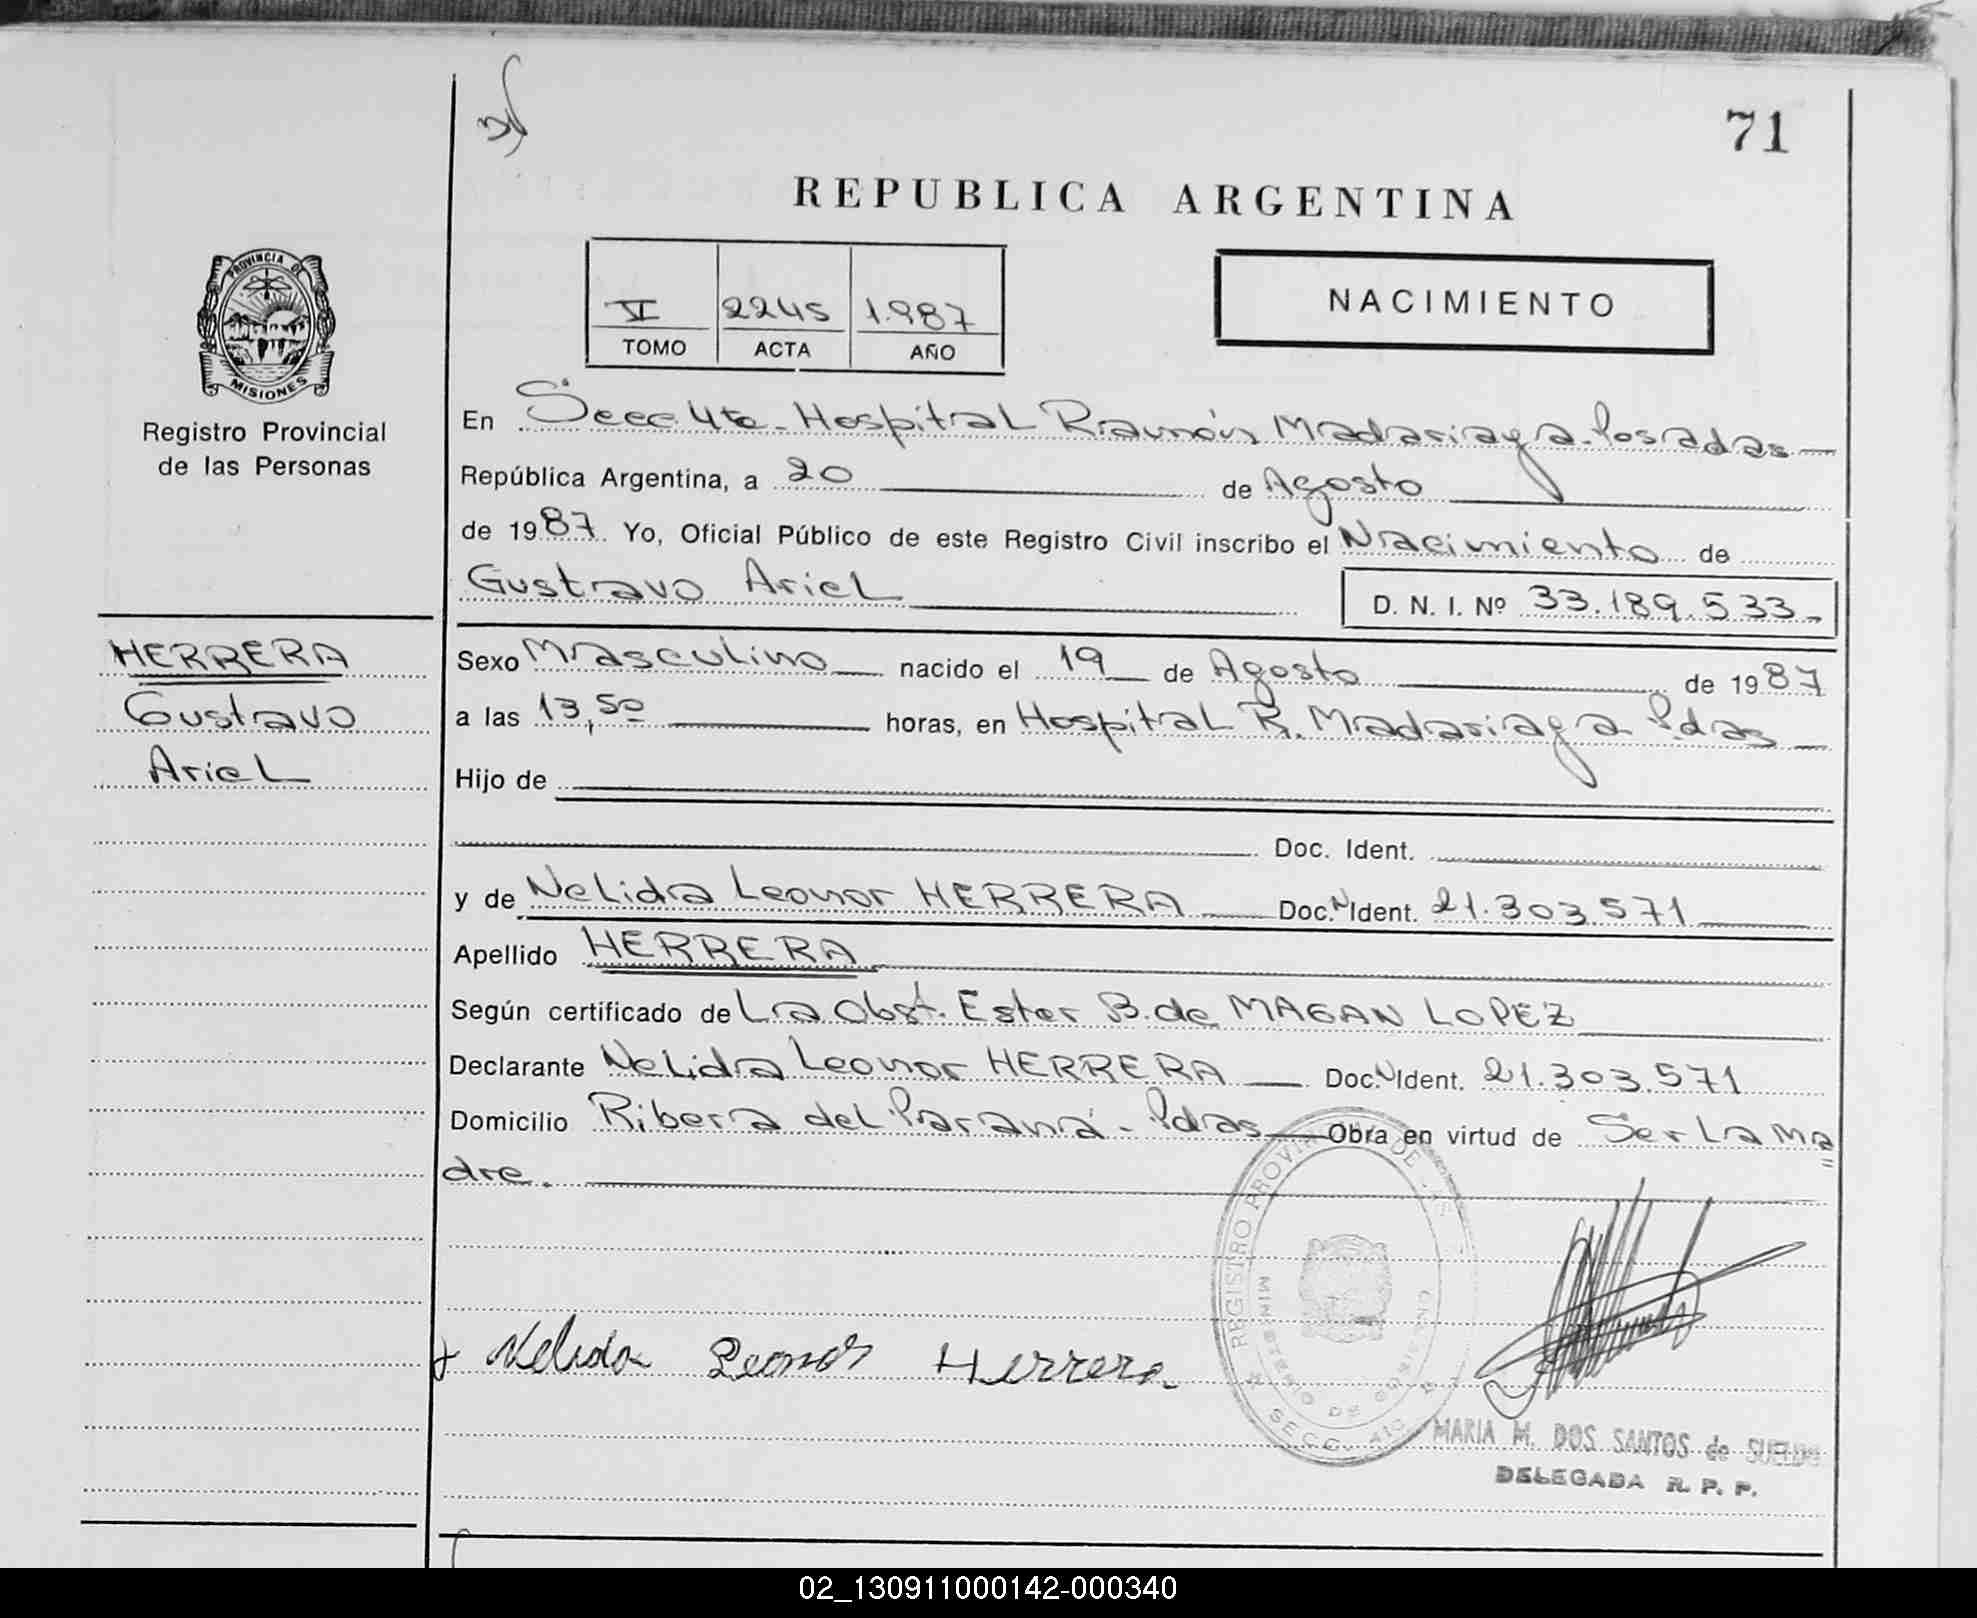 71
REPUBLICA ARGENTINA
PROVINCIA DE
MISIONES
Registro Provincial
de las Personas
V 2245 1.987
TOMO ACTA AÑO
NACIMIENTO
En Secc. 4ta - Hospital Ramón Madariaga - Posadas
República Argentina, a 20 de Agosto
de 1987. Yo, Oficial Público de este Registro Civil inscribo el Nacimiento de
Gustavo Ariel D. N. I. Nº 33.189.533-
HERRERA
Gustavo
Ariel
Sexo Masculino nacido el 19 de Agosto de 1987
a las 13,50 horas, en Hospital R. Madariaga Pdas
Hijo de
Doc. Ident.
y de Nelida Leonor HERRERA Doc. N Ident. 21.303.571
Apellido HERRERA
Según certificado de La Obst. Ester B. de MAGAN LOPEZ
Declarante Nelida Leonor HERRERA Doc. N Ident. 21.303.571
Domicilio Ribera del Paraná - Pdas Obra en virtud de Ser La Ma=
dre.
REGISTRO PROVINCIAL DE
MINISTERIO DE GOBIERNO
SECC.
Nelida Leonor Herrera
MARIA M. DOS SANTOS de SUELDO
DELEGADA R. P. P.
02_130911000142-000340